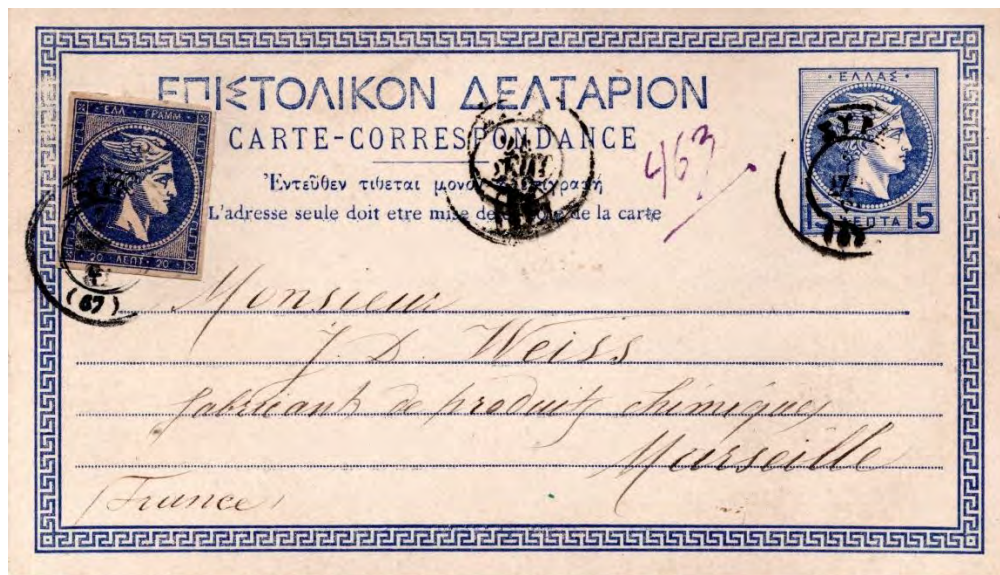 ΕΠΙΣΤΟΛΙΚΟΝ ΔΕΛΤΑΡΙΟΝ
CARTE-CORRESPONDANCE
Ἐντεῦθεν τίθεται μόνον
L'adresse seule doit etre mise de la carte
463
ΕΛΛ ΓΡΑΜΜ
20 ΛΕΠΤ 20
(67)
ΕΛΛΑΣ
15 ΛΕΠΤΑ 15
ΣΥΡ
17
Monsieur
J. D. Weiss
fabricant de produits chimiques
Marseille
(France)